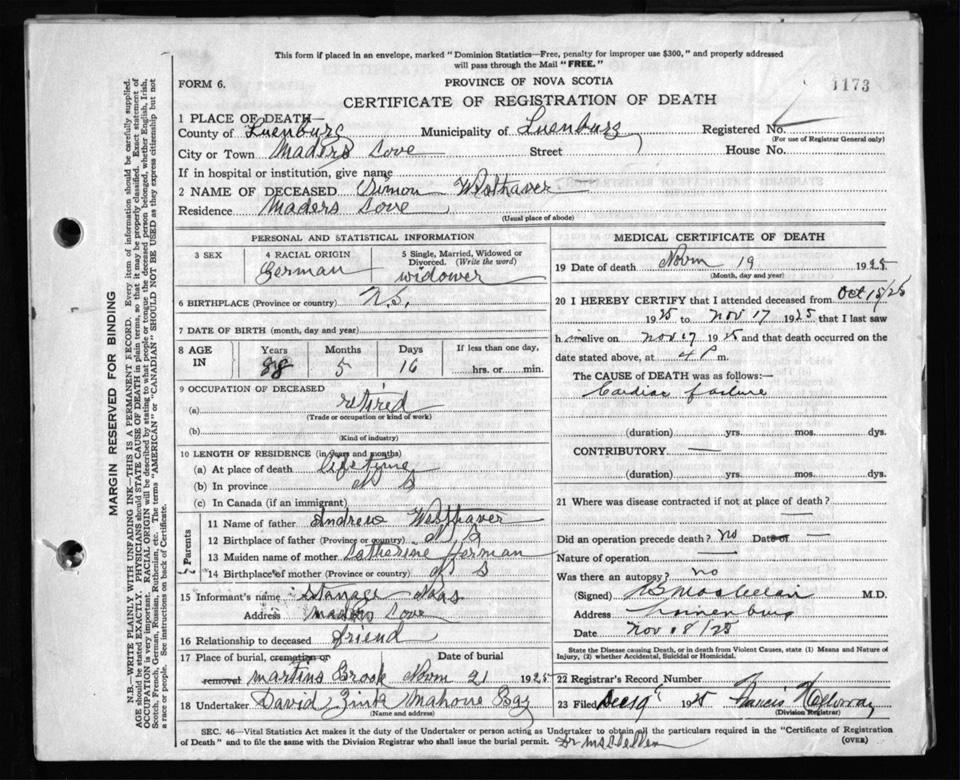 This form if placed in an envelope, marked "Dominion Statistics—Free, penalty for improper use $300," and properly addressed
will pass through the Mail "FREE."
FORM 6.
PROVINCE OF NOVA SCOTIA
1173
CERTIFICATE OF REGISTRATION OF DEATH
1 PLACE OF DEATH—
County of Luenburg Municipality of Luenburg Registered No.
(For use of Registrar General only)
City or Town Maders Cove Street House No.
If in hospital or institution, give name
2 NAME OF DECEASED Simon Westhaver
Residence Maders Cove
(Usual place of abode)
PERSONAL AND STATISTICAL INFORMATION
3 SEX 4 RACIAL ORIGIN German 5 Single, Married, Widowed or Divorced. (Write the word) widower
6 BIRTHPLACE (Province or country) N.S.
7 DATE OF BIRTH (month, day and year)
8 AGE IN Years 88 Months 5 Days 16 If less than one day, hrs. or min.
9 OCCUPATION OF DECEASED
(a) retired
(Trade or occupation or kind of work)
(b)
(Kind of industry)
10 LENGTH OF RESIDENCE (in years and months)
(a) At place of death lifetime
(b) In province N S
(c) In Canada (if an immigrant)
Parents
11 Name of father Andrew Westhaver
12 Birthplace of father (Province or country) N S
13 Maiden name of mother Catharine Herman
14 Birthplace of mother (Province or country) N S
15 Informant's name
Address Maders Cove
16 Relationship to deceased friend
17 Place of burial, cremation or removal Martins Brook Date of burial Novm 21 1925
18 Undertaker David Zink Mahone Bay
(Name and address)
MEDICAL CERTIFICATE OF DEATH
19 Date of death Novm 19 1925
(Month, day and year)
20 I HEREBY CERTIFY that I attended deceased from Oct 15/25
1925 to Nov 17 1925 that I last saw
h im alive on Nov 17 1925 and that death occurred on the
date stated above, at 4 P m.
The CAUSE of DEATH was as follows:—
Cardiac failure
(duration) yrs. mos. dys.
CONTRIBUTORY —
(duration) yrs. mos. dys.
21 Where was disease contracted if not at place of death?
—
Did an operation precede death? no Date of —
Nature of operation —
Was there an autopsy? no
(Signed) M.D.
Address
Date
State the Disease causing Death, or in death from Violent Causes, state (1) Means and Nature of
Injury, (2) whether Accidental, Suicidal or Homicidal.
22 Registrar's Record Number 7
23 Filed Dec 19 1925 Francis Holloway
(Division Registrar)
SEC. 46—Vital Statistics Act makes it the duty of the Undertaker or person acting as Undertaker to obtain all the particulars required in the "Certificate of Registration
of Death" and to file the same with the Division Registrar who shall issue the burial permit.
(OVER)
MARGIN RESERVED FOR BINDING
N.B.—WRITE PLAINLY WITH UNFADING INK—THIS IS A PERMANENT RECORD. Every item of information should be carefully supplied.
AGE should be stated EXACTLY. PHYSICIANS should STATE CAUSE OF DEATH in plain terms, so that it may be properly classified. Exact statement of
OCCUPATION is very important. RACIAL ORIGIN will be described by stating to what people or tongue the deceased person belonged, whether English, Irish,
Scotch, French, German, Russian, Ruthenian, etc. The terms "AMERICAN" or "CANADIAN" SHOULD NOT BE USED as they express citizenship but not
a race or people. See instructions on back of Certificate.